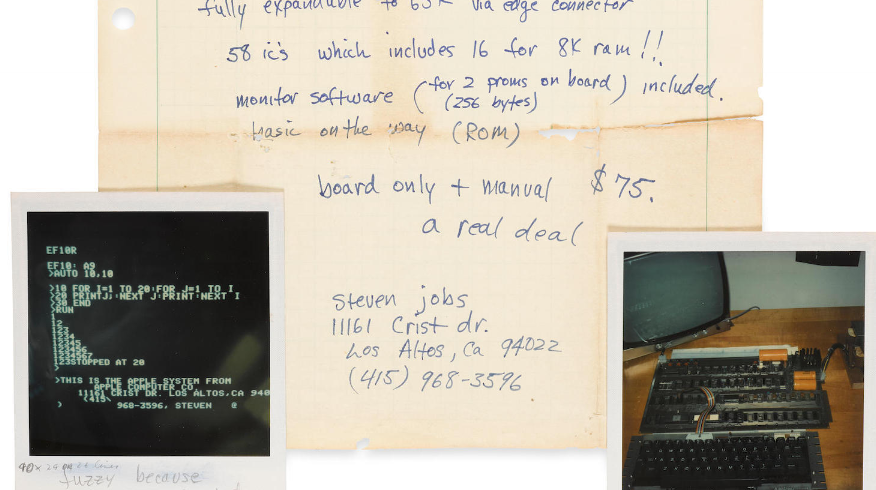 fully expandable to 65K via edge connector
58 ic's which includes 16 for 8K ram!!
monitor software (for 2 proms on board) included.
(256 bytes)
basic on the way (ROM)
board only + manual $75.
a real deal
steven jobs
11161 Crist dr.
Los Altos, Ca 94022
(415) 968-3596
EF10R
EF10: A9
>AUTO 10,10
>10 FOR I=1 TO 20:FOR J=1 TO I
>20 PRINTJ;:NEXT J:PRINT:NEXT I
>30 END
>RUN
1
12
123
1234
12345
123456
1234567
123STOPPED AT 20
>
>THIS IS THE APPLE SYSTEM FROM
APPLE COMPUTER CO.
11161 CRIST DR. LOS ALTOS,CA 940
(415)
> 968-3596, STEVEN @
fuzzy because